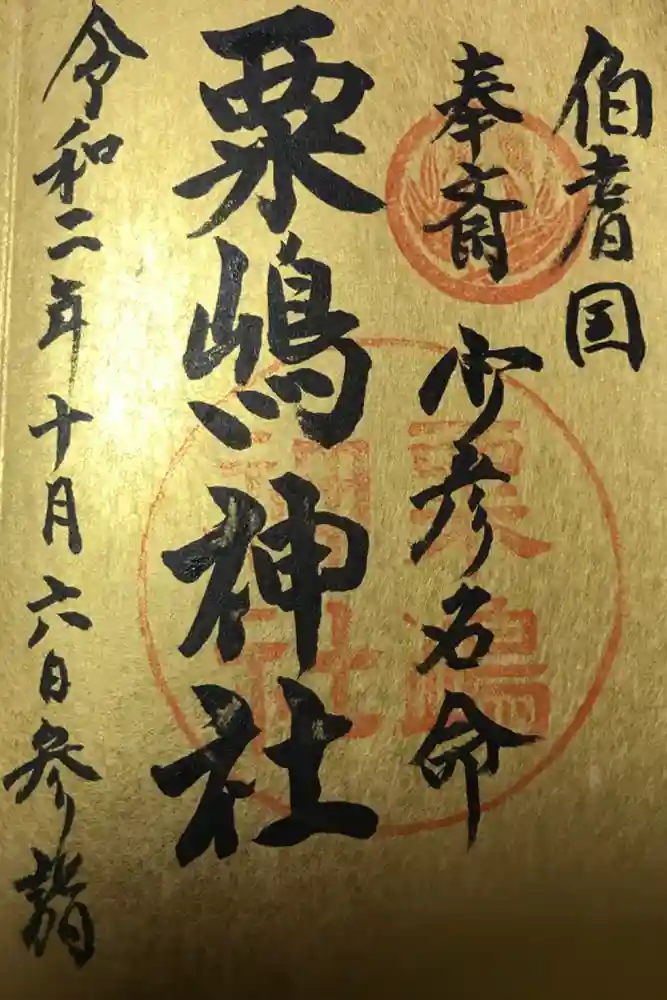 伯耆国
奉斎 少彦名命
粟嶋神社
令和二年十月六日参詣
粟嶋神社